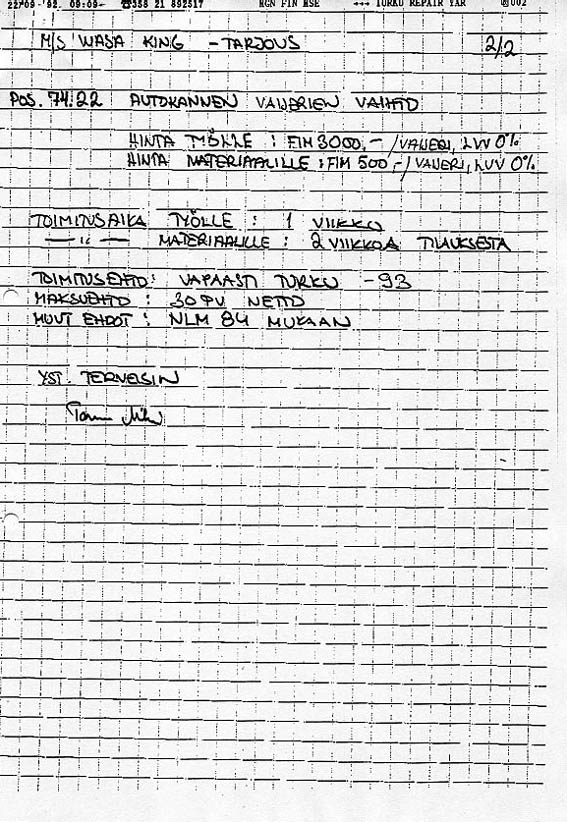 22/09 '92 09:09 ☎358 21 892517 HGN FIN HSE →→→ TURKU REPAIR YAR 002
M/S WASA KING - TARJOUS 2/2
POS. 74.22 AUTOKANNEN VAIJERIEN VAIHTO
HINTA TYÖLLE : FIM 3000,- / VAIJERI, LVV 0%
HINTA MATERIAALILLE : FIM 500,- / VAIJERI, LVV 0%
TOIMITUSAIKA TYÖLLE : 1 VIIKKO
— " — MATERIAALILLE : 2 VIIKKOA TILAUKSESTA
TOIMITUSEHTO : VAPAASTI TURKU - 93
MAKSUEHTO : 30 PV NETTO
MUUT EHDOT : NLM 84 MUKAAN
YST. TERVEISIN